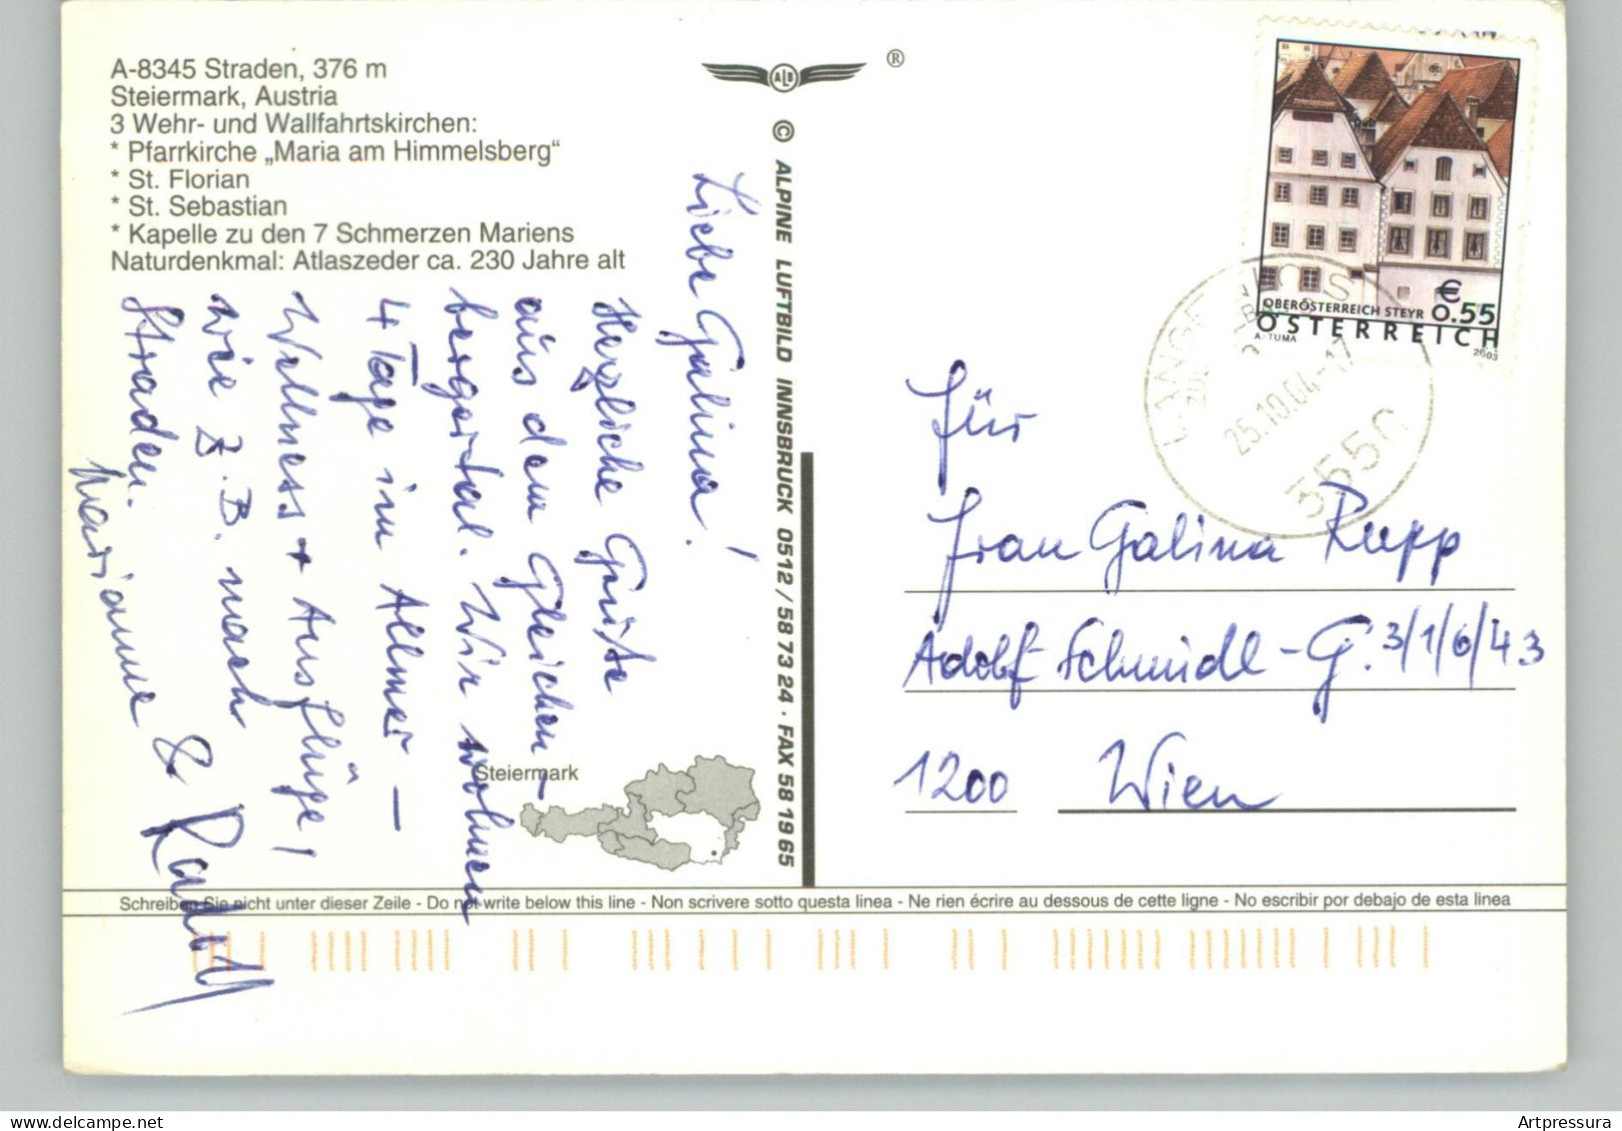 A-8345 Straden, 376 m
Steiermark, Austria
3 Wehr- und Wallfahrtskirchen:
* Pfarrkirche „Maria am Himmelsberg“
* St. Florian
* St. Sebastian
* Kapelle zu den 7 Schmerzen Mariens
Naturdenkmal: Atlaszeder ca. 230 Jahre alt
Liebe Galina!
Herzliche Grüße
aus dem Gleichen-
bergertal. Wir wohnen
4 Tage im Allmer –
Wellness + Ausflüge!
wie z.B. nach
Straden.
Marianne &
Steiermark
ALB
®
© ALPINE LUFTBILD INNSBRUCK 0512 / 58 73 24 · FAX 58 19 65
€
0.55
OBERÖSTERREICH STEYR
ÖSTERREICH
A. TUMA
2003
25.10.04-17
3550
Für
Frau Galina Rupp
Adolf-Schmidl-G. 3/1/6/43
1200 Wien
Schreiben Sie nicht unter dieser Zeile - Do not write below this line - Non scrivere sotto questa linea - Ne rien écrire au dessous de cette ligne - No escribir por debajo de esta linea
www.delcampe.net
Artpressura